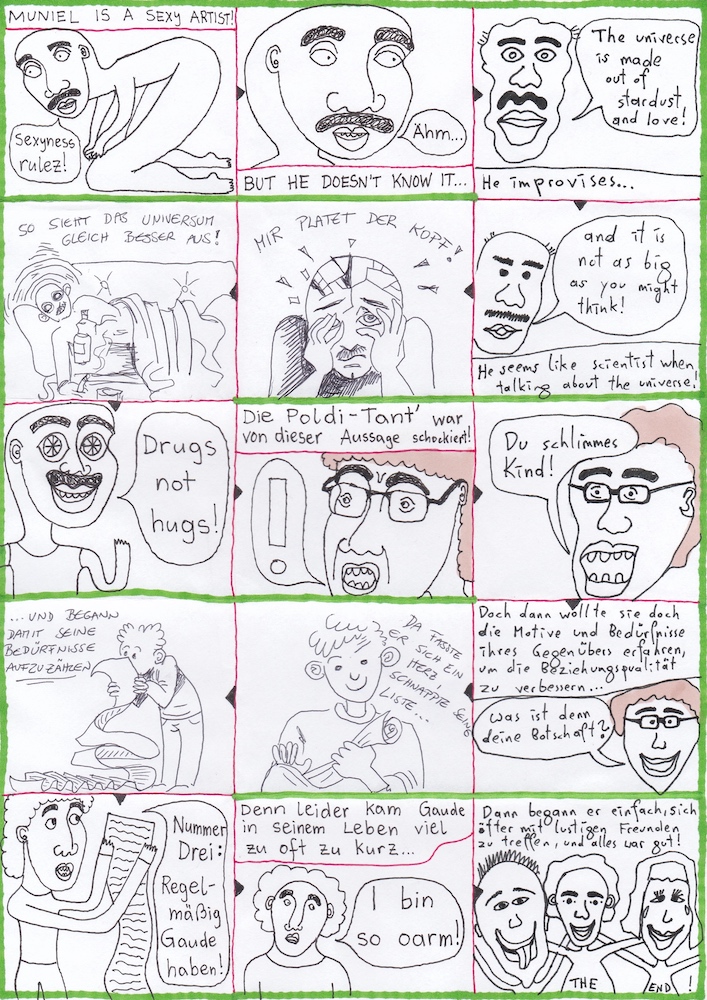 MUNIEL IS A SEXY ARTIST!
Sexyness
rulez!
Ähm...
BUT HE DOESN'T KNOW IT...
The universe
is made
out of
stardust
and love!
He improvises...
and it is
not as big
as you might
think!
He seems like scientist when
talking about the universe!
MIR PLATZT DER KOPF!
SO SIEHT DAS UNIVERSUM
GLEICH BESSER AUS!
Drugs
not
hugs!
Die Poldi-Tant' war
von dieser Aussage schockiert!
!
Du schlimmes
Kind!
Doch dann wollte sie doch
die Motive und Bedürfnisse
ihres Gegenübers erfahren,
um die Beziehungsqualität
zu verbessern...
Was ist denn
deine Botschaft?
DA FASSTE
ER SICH EIN
HERZ
SCHNAPPTE SEINE
LISTE...
...UND BEGANN
DAMIT SEINE
BEDÜRFNISSE
AUFZUZÄHLEN
Nummer
Drei:
Regel-
mäßig
Gaude
haben!
Denn leider kam Gaude
in seinem Leben viel
zu oft zu kurz...
I bin
so oarm!
Dann begann er einfach, sich
öfter mit lustigen Freunden
zu treffen, und alles war gut!
THE END!